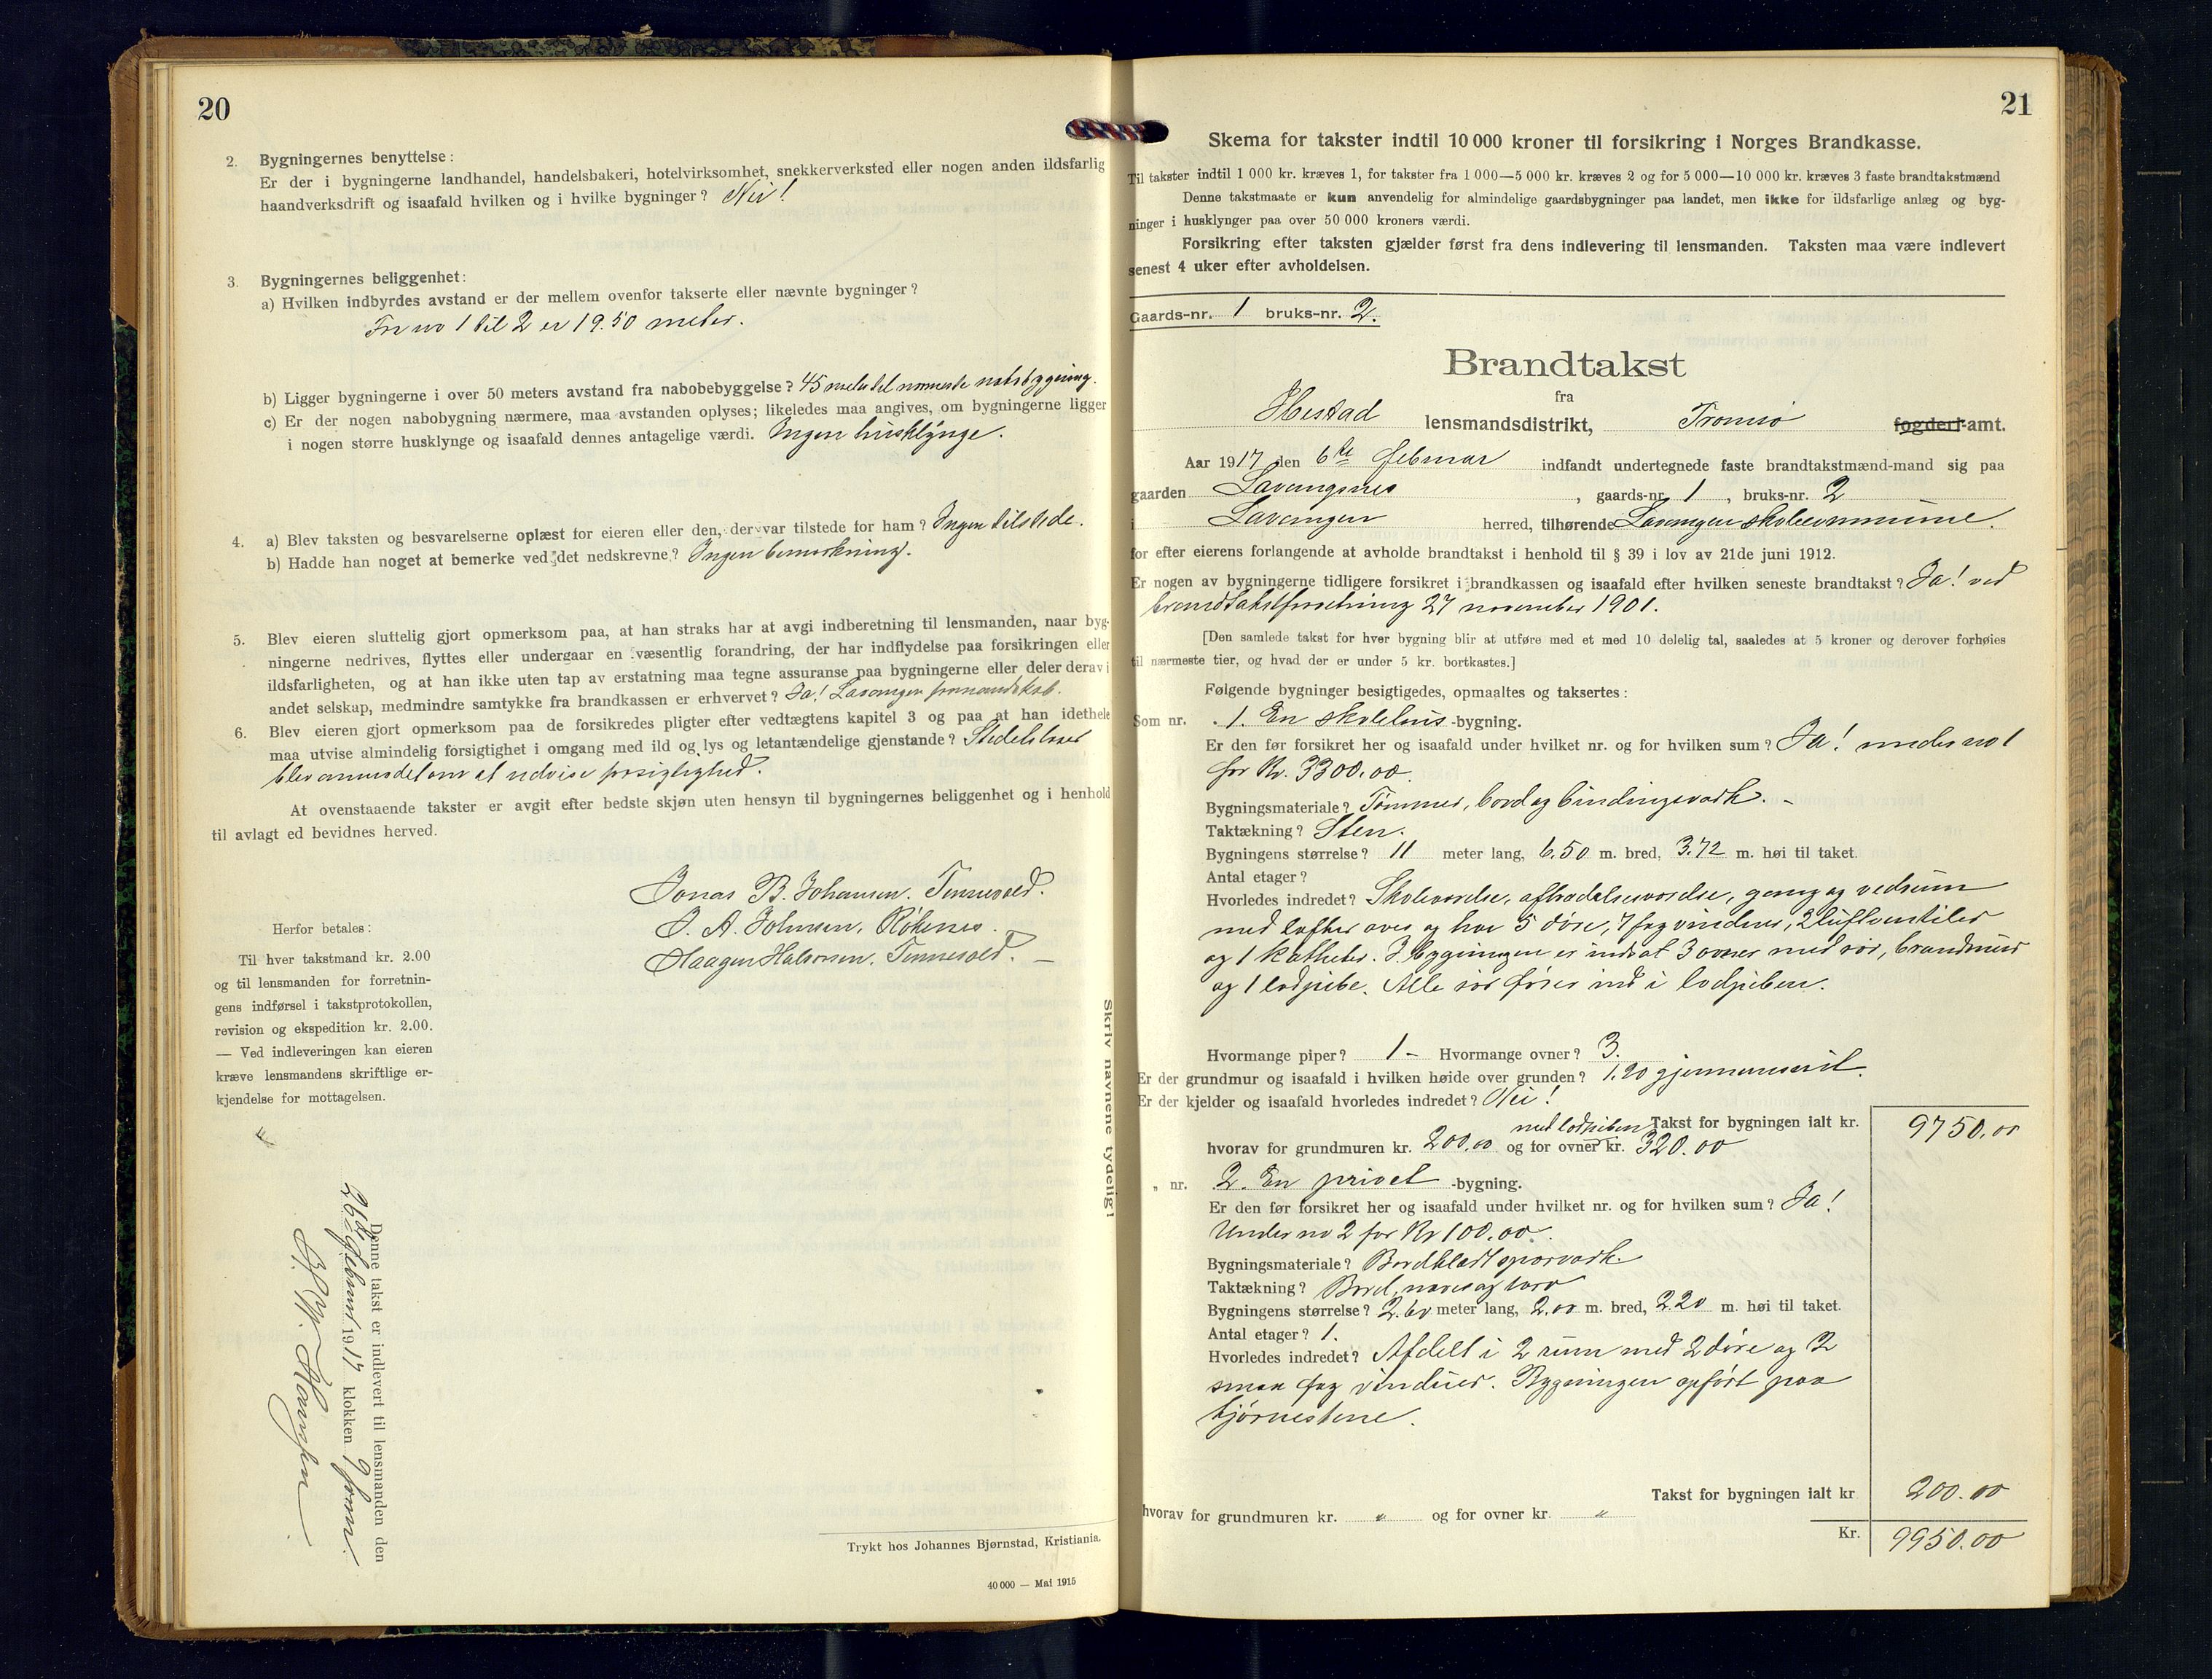 20
2. Bygningernes benyttelse:
Er der i bygningerne landhandel, handelsbakeri, hotelvirksomhet, snekkerverksted eller nogen anden ildsfarlig
haandverksdrift og isaafald hvilken og i hvilke bygninger? Nei!
3. Bygningernes beliggenhet:
a) Hvilken indbyrdes avstand er der mellem ovenfor takserte eller nævnte bygninger?
Fra no 1 til 2 er 19.50 meter.
b) Ligger bygningerne i over 50 meters avstand fra nabobebyggelse? 45 meter til nærmeste nabobygning.
c) Er der nogen nabobygning nærmere, maa avstanden oplyses; likeledes maa angives, om bygningerne ligger
i nogen større husklynge og isaafald dennes antagelige værdi. Ingen husklynge.
4. a) Blev taksten og besvarelserne oplæst for eieren eller den, der var tilstede for ham? Ingen tilstede.
b) Hadde han noget at bemerke ved det nedskrevne? Ingen bemerkning.
5. Blev eieren sluttelig gjort opmerksom paa, at han straks har at avgi indberetning til lensmanden, naar byg-
ningerne nedrives, flyttes eller undergaar en væsentlig forandring, der har indflydelse paa forsikringen eller
ildsfarligheten, og at han ikke uten tap av erstatning maa tegne assuranse paa bygningerne eller deler derav i
andet selskap, medmindre samtykke fra brandkassen er erhvervet? Ja! Lavangen formandskab.
6. Blev eieren gjort opmerksom paa de forsikredes pligter efter vedtægtens kapitel 3 og paa at han idethele
maa utvise almindelig forsigtighet i omgang med ild og lys og letantændelige gjenstande? Stedets lærer
blev anmodet om at udvise forsigtighed.
At ovenstaaende takster er avgit efter bedste skjøn uten hensyn til bygningernes beliggenhet og i henhold
til avlagt ed bevidnes herved.
Jonas B. Johansen. Tennevold.
J. A. Johnsen, Røkenes.
Haagen Halvorsen. Tennevold. —
Herfor betales:
Til hver takstmand kr. 2.00
og til lensmanden for forretnin-
gens indførsel i takstprotokollen,
revision og ekspedition kr. 2.00.
— Ved indleveringen kan eieren
kræve lensmandens skriftlige er-
kjendelse for mottagelsen.
Denne takst er indlevert til lensmanden den
26de februar 1917 klokken 9 form.
Skriv navnene tydelig!
Trykt hos Johannes Bjørnstad, Kristiania.
40 000 — Mai 1915
21
Skema for takster indtil 10 000 kroner til forsikring i Norges Brandkasse.
Til takster indtil 1 000 kr. kræves 1, for takster fra 1 000—5 000 kr. kræves 2 og for 5 000—10 000 kr. kræves 3 faste brandtakstmænd
Denne takstmaate er kun anvendelig for almindelige gaardsbygninger paa landet, men ikke for ildsfarlige anlæg og byg-
ninger i husklynger paa over 50 000 kroners værdi.
Forsikring efter taksten gjælder først fra dens indlevering til lensmanden. Taksten maa være indlevert
senest 4 uker efter avholdelsen.
Gaards-nr. 1 bruks-nr. 2.
Brandtakst
fra
Ibestad lensmandsdistrikt, Tromsø fogderi-amt.
Aar 1917 den 6te februar indfandt undertegnede faste brandtakstmænd-mand sig paa
gaarden Lavangsnes, gaards-nr. 1, bruks-nr. 2
i Lavangen herred, tilhørende Lavangen skolecommune.
for efter eierens forlangende at avholde brandtakst i henhold til § 39 i lov av 21de juni 1912.
Er nogen av bygningerne tidligere forsikret i brandkassen og isaafald efter hvilken seneste brandtakst? Ja! ved
brandtakstforretning 27 november 1901.
[Den samlede takst for hver bygning blir at utføre med et med 10 delelig tal, saaledes at 5 kroner og derover forhøies
til nærmeste tier, og hvad der er under 5 kr. bortkastes.]
Følgende bygninger besigtigedes, opmaaltes og taksertes:
Som nr. 1. En skolehus-bygning.
Er den før forsikret her og isaafald under hvilket nr. og for hvilken sum? Ja! under no 1
for Kr. 3300.00.
Bygningsmateriale? Tømmer, bord og bindingsverk. -
Taktækning? Sten.
Bygningens størrelse? 11 meter lang, 6.50 m. bred, 3.72 m. høi til taket.
Antal etager?
Hvorledes indredet? Skoleværelse, aftrædelsesværelse, gang og vedrum
med lofter over og har 5 døre, 7 fag vinduer, 2 luftventiler
og 1 katheter. I bygningen er indsat 3 ovner med rør, brandmur
og 1 lodpibe. Alle rør fører ind i lodpiben.
Hvormange piper? 1 — Hvormange ovner? 3.
Er der grundmur og isaafald i hvilken høide over grunden? 1.20 gjennemsnit.
Er der kjelder og isaafald hvorledes indredet? Nei!
Takst for bygningen ialt kr. 9750.00
hvorav for grundmuren kr. 200.00 og for ovner med lodpiben kr. 320.00
„ nr. 2. En privet-bygning.
Er den før forsikret her og isaafald under hvilket nr. og for hvilken sum? Ja!
Under no 2 for Kr 100.00.
Bygningsmateriale? Bordklædt sparverk.
Taktækning? Bord, næver og torv
Bygningens størrelse? 2.60 meter lang, 2.00 m. bred, 2.20 m. høi til taket.
Antal etager? 1.
Hvorledes indredet? Afdelt i 2 rum med 2 døre og 2
smaa fag vinduer. Bygningen opført paa
hjørnestene.
Takst for bygningen ialt kr 200.00
hvorav for grundmuren kr. „ og for ovner kr. „
Kr. 9950.00